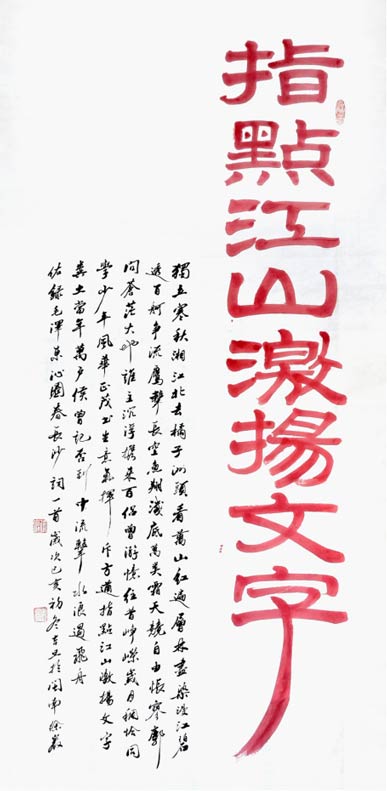 指點江山激揚文字
獨立寒秋湘江北去橘子洲頭看萬山紅遍層林盡染漫江碧
透百舸爭流鷹擊長空魚翔淺底萬类霜天競自由悵寥廓
问蒼茫大地誰主沉浮攜來百侶曾游憶往昔崢嶸歲月稠恰同
學少年風華正茂书生意氣揮斥方遒指點江山激揚文字
糞土當年萬戶侯曾記否到中流擊水浪遏飛舟
錄毛澤东沁園春長沙詞一首歲次己亥初冬吉旦於闽南徐